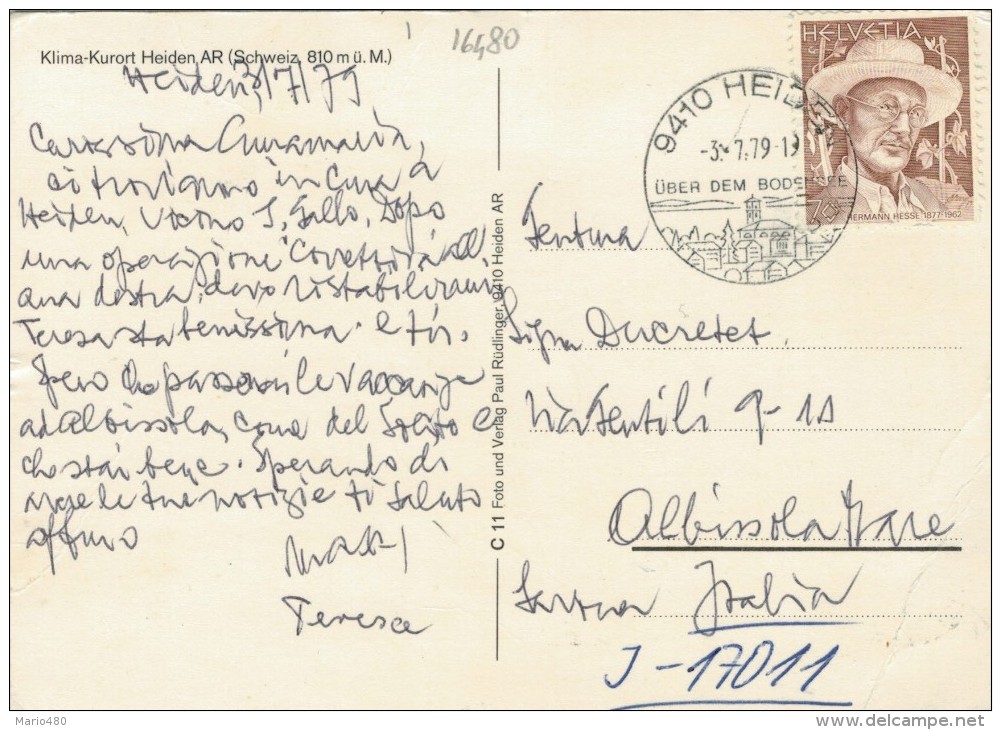 16480
Klima-Kurort Heiden AR (Schweiz, 810 m ü. M.)
Heiden, 3/7/79
Carissima Annamaria,
ci troviamo in cura a
Heiden vicino S. Gallo. Dopo
una operazione all'
anca destra, devo ristabilirmi
Teresa sta benissimo. e tu.
Spero che passerai le vacanze
ad Albissola, come del solito e
che stai bene. Sperando di
avere le tue notizie ti saluto
Teresa
C 11 Foto und Verlag Paul Rüdlinger, 9410 Heiden AR
HELVETIA
HERMANN HESSE 1877-1962
9410 HEIDEN
-3.-7.79-1
ÜBER DEM BODENSEE
Gentma
Sigra Ducretet
Via Gentili 9-10
Albissola Mare
Savona Italia
I-17011
Mario480
www.delcampe.net